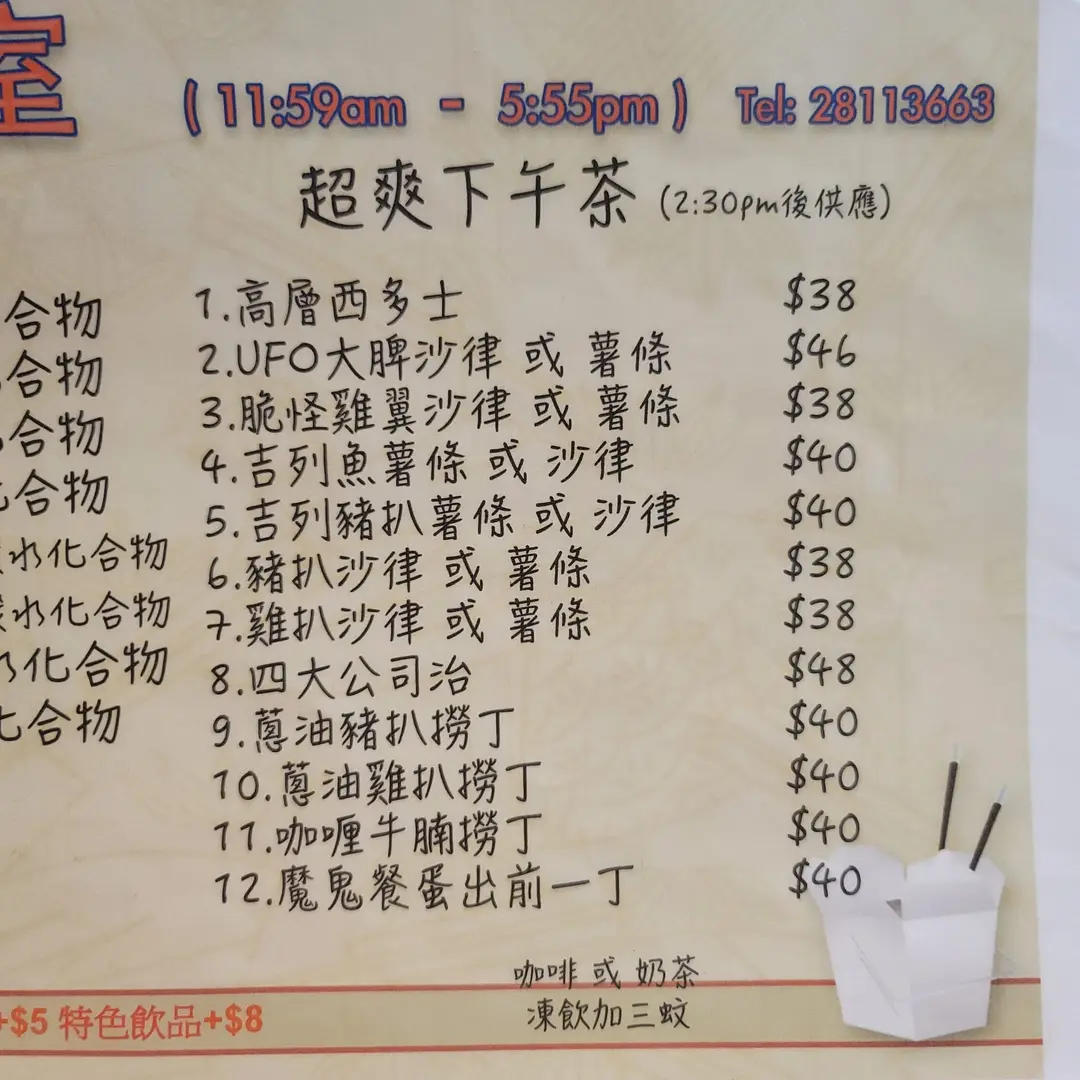 室
( 11:59am - 5:55pm ) Tel: 28113663
超爽下午茶 (2:30pm後供應)
合物
合物
合物
化合物
水化合物
水化合物
化合物
化合物
1.高層西多士 $38
2.UFO大脾沙律 或 薯條 $46
3.脆怪雞翼沙律 或 薯條 $38
4.吉列魚薯條 或 沙律 $40
5.吉列豬扒薯條 或 沙律 $40
6.豬扒沙律 或 薯條 $38
7.雞扒沙律 或 薯條 $38
8.四大公司治 $48
9.蔥油豬扒撈丁 $40
10.蔥油雞扒撈丁 $40
11.咖喱牛腩撈丁 $40
12.魔鬼餐蛋出前一丁 $40
咖啡 或 奶茶
凍飲加三蚊
+$5 特色飲品+$8